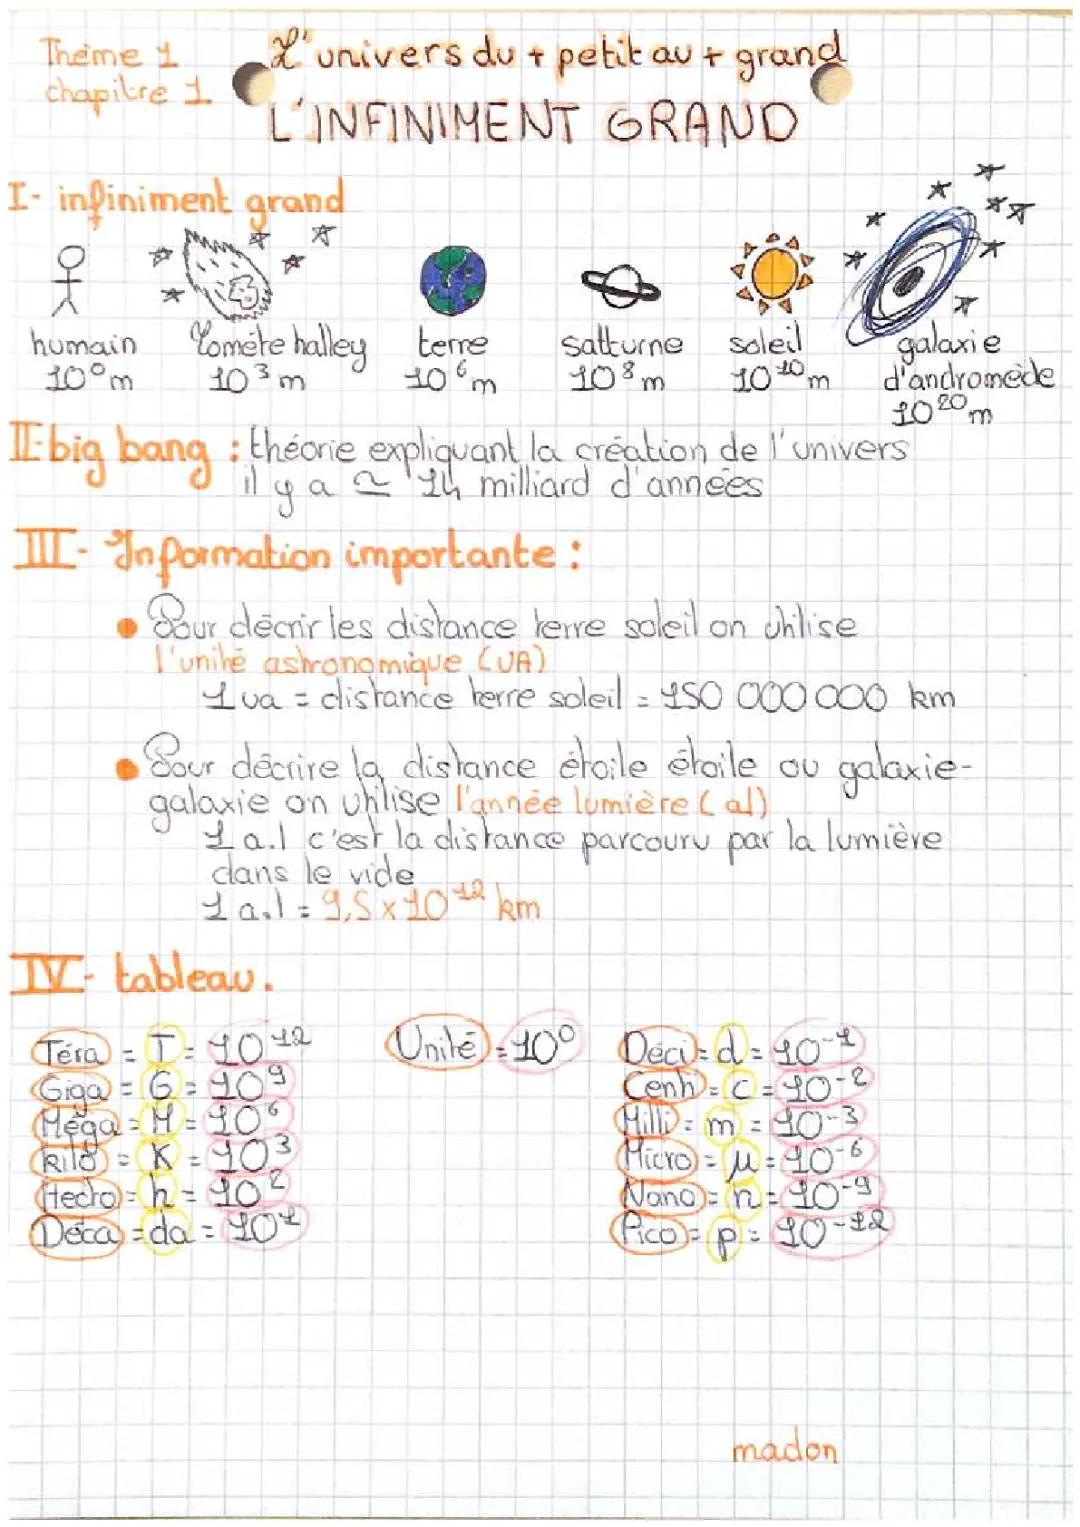 Thème 1
chapitre 1
L'univers du + petit au + grand
L'INFINIMENT GRAND
I- infiniment grand
humain
10⁰ m
Comète halley
10³ m
terre
10⁶ m
satturne
10⁸ m
soleil
10¹⁰ m
galaxie
d'andromède
10²⁰ m
II- big bang : théorie expliquant la création de l'univers
il y a ≃ 14 milliard d'années
III- Information importante :
• Pour décrir les distance terre soleil on utilise
l'unité astronomique (UA)
1 ua = distance terre soleil = 150 000 000 km
• Pour décrire la distance étoile étoile ou galaxie-
galaxie on utilise l'année lumière (al)
1 a.l c'est la distance parcouru par la lumière
dans le vide
1 a.l = 9,5 x 10¹² km
IV- tableau.
Téra = T = 10¹²
Giga = G = 10⁹
Méga = M = 10⁶
Kilo = K = 10³
Hecto = h = 10²
Déca = da = 10¹
Unité = 10⁰
Déci = d = 10⁻¹
Centi = c = 10⁻²
Milli = m = 10⁻³
Micro = µ = 10⁻⁶
Nano = n = 10⁻⁹
Pico = p = 10⁻¹²
madon